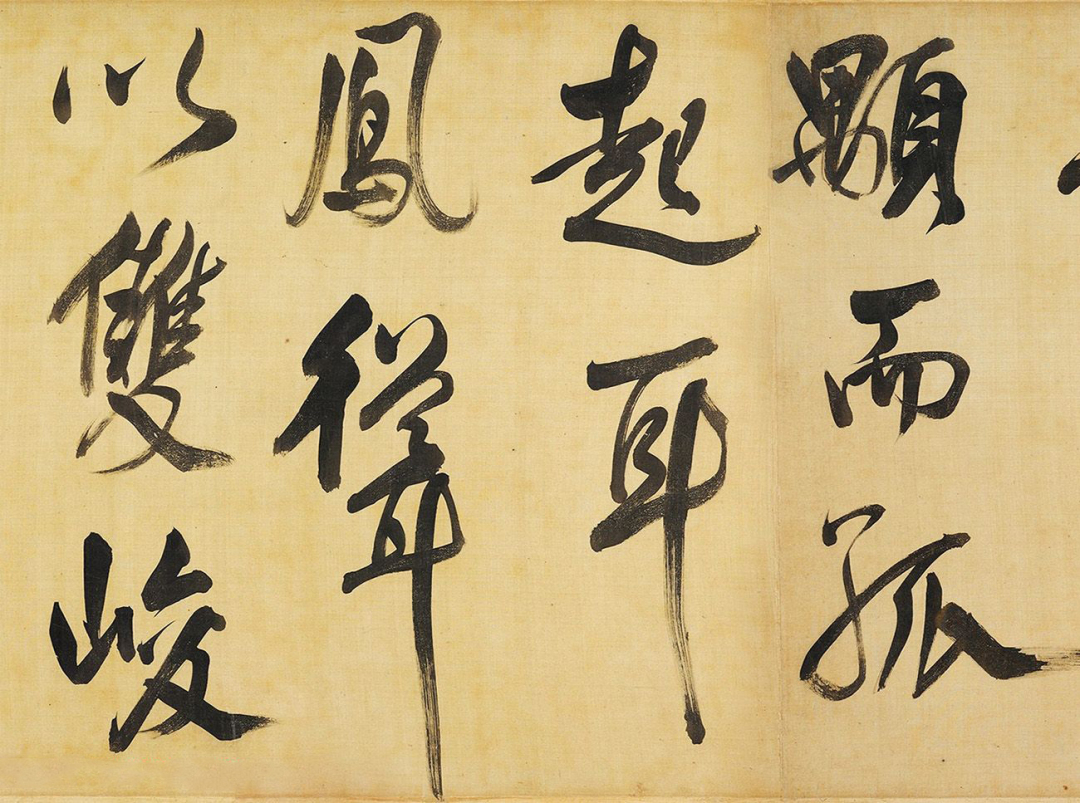 顒而孤
起耳
鳳聳
以雙峻